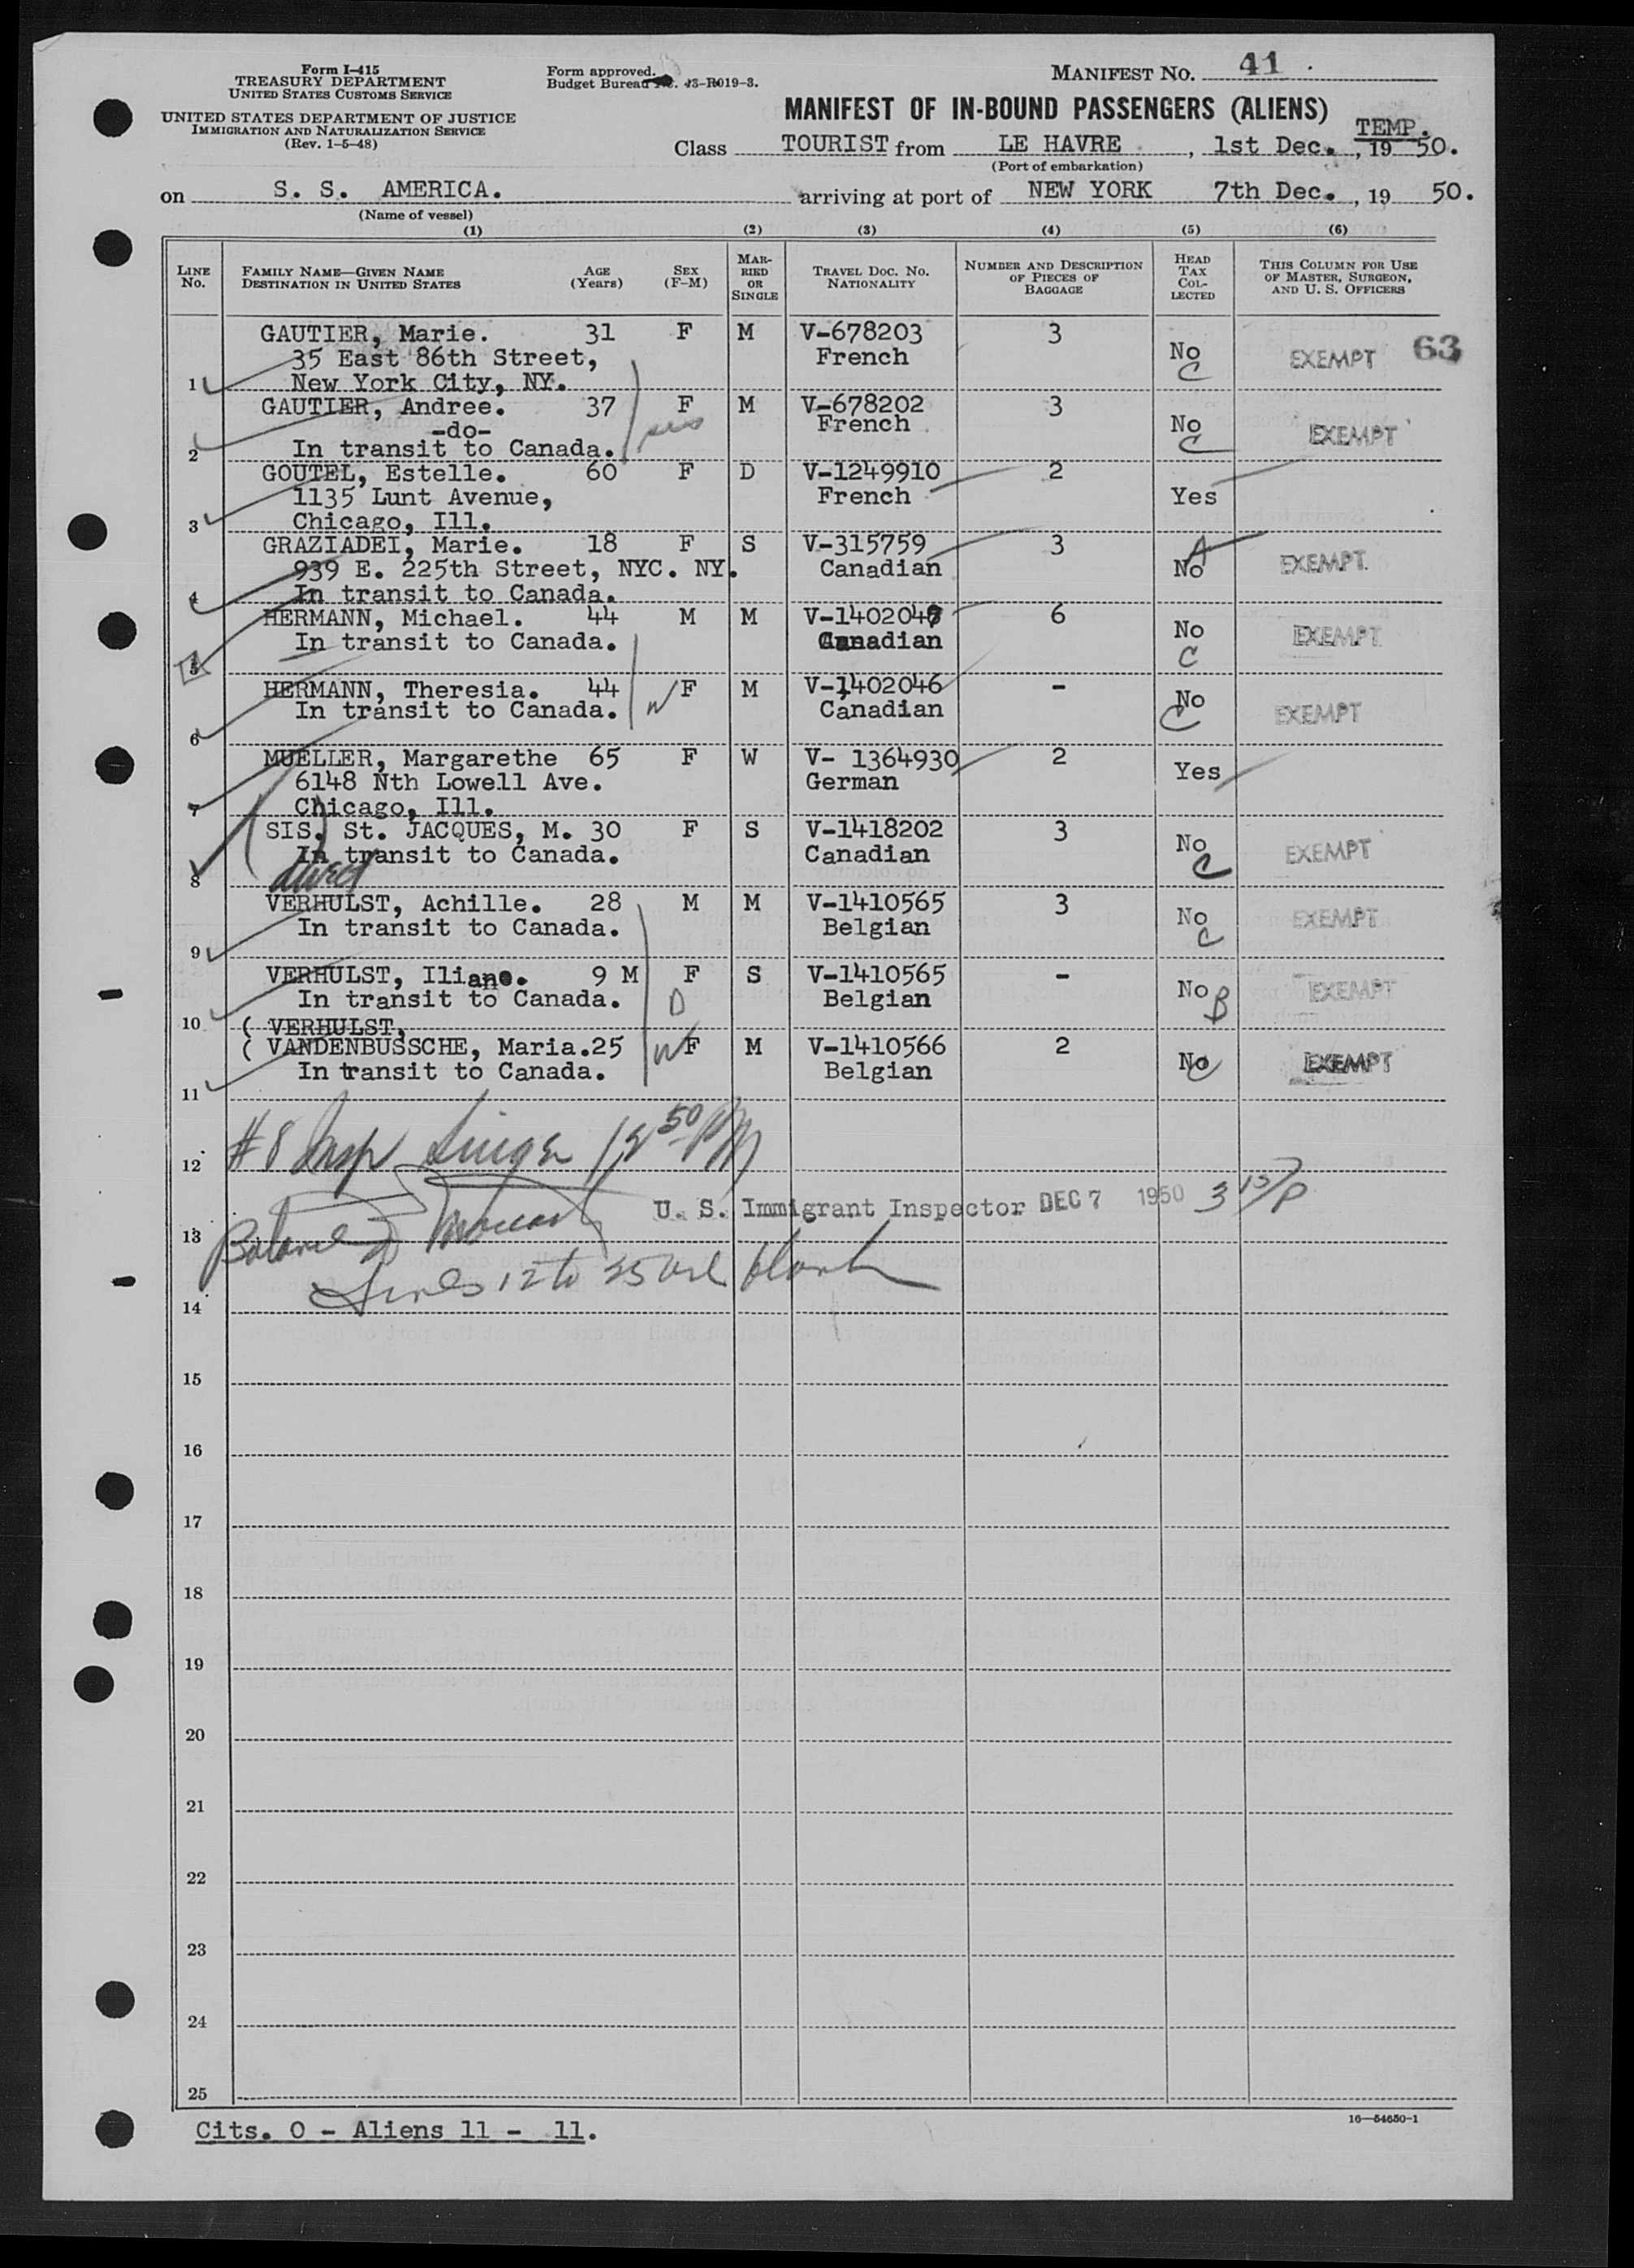 Form I-415
TREASURY DEPARTMENT
UNITED STATES CUSTOMS SERVICE
UNITED STATES DEPARTMENT OF JUSTICE
IMMIGRATION AND NATURALIZATION SERVICE
(Rev. 1-5-48)
Form approved.
Budget Bureau No. 43-R019-3.
MANIFEST NO. 41
MANIFEST OF IN-BOUND PASSENGERS (ALIENS)
TEMP.
Class TOURIST from LE HAVRE, 1st Dec., 19 50.
(Port of embarkation)
on S. S. AMERICA. arriving at port of NEW YORK 7th Dec., 19 50.
(Name of vessel)
(1) (2) (3) (4) (5) (6)
LINE NO. FAMILY NAME—GIVEN NAME DESTINATION IN UNITED STATES AGE (Years) SEX (F-M) MARRIED OR SINGLE TRAVEL DOC. NO. NATIONALITY NUMBER AND DESCRIPTION OF PIECES OF BAGGAGE HEAD TAX COLLECTED THIS COLUMN FOR USE OF MASTER, SURGEON, AND U. S. OFFICERS
GAUTIER, Marie. 31 F M V-678203 3
35 East 86th Street, French No EXEMPT 63
1 New York City, NY. C
GAUTIER, Andree. 37 F M V-678202 3
-do- French No EXEMPT
2 In transit to Canada. C
GOUTEL, Estelle. 60 F D V-1249910 2
1135 Lunt Avenue, French Yes
3 Chicago, Ill.
GRAZIADEI, Marie. 18 F S V-315759 3 A
939 E. 225th Street, NYC. NY. Canadian No EXEMPT
4 In transit to Canada.
HERMANN, Michael. 44 M M V-1402047 6 No EXEMPT
In transit to Canada. Canadian C
5
HERMANN, Theresia. 44 W F M V-1402046 - No
In transit to Canada. Canadian C EXEMPT
6
MUELLER, Margarethe 65 F W V- 1364930 2
6148 Nth Lowell Ave. German Yes
7 Chicago, Ill.
SIS. St. JACQUES, M. 30 F S V-1418202 3 No
In transit to Canada. Canadian C EXEMPT
8 direct
VERHULST, Achille. 28 M M V-1410565 3 No EXEMPT
In transit to Canada. Belgian C
9
VERHULST, Iliane. 9 M F S V-1410565 - No EXEMPT
In transit to Canada. D Belgian B
10 ( VERHULST,
( VANDENBUSSCHE, Maria. 25 W F M V-1410566 2 No EXEMPT
In transit to Canada. Belgian C
11
12 #8 Insp Singer 12 50 PM
U. S. Immigrant Inspector DEC 7 1950 3 15/P
13 Balance
Lines 12 to 25 are blank
14
15
16
17
18
19
20
21
22
23
24
25
16—54650-1
Cits. 0 - Aliens 11 - 11.